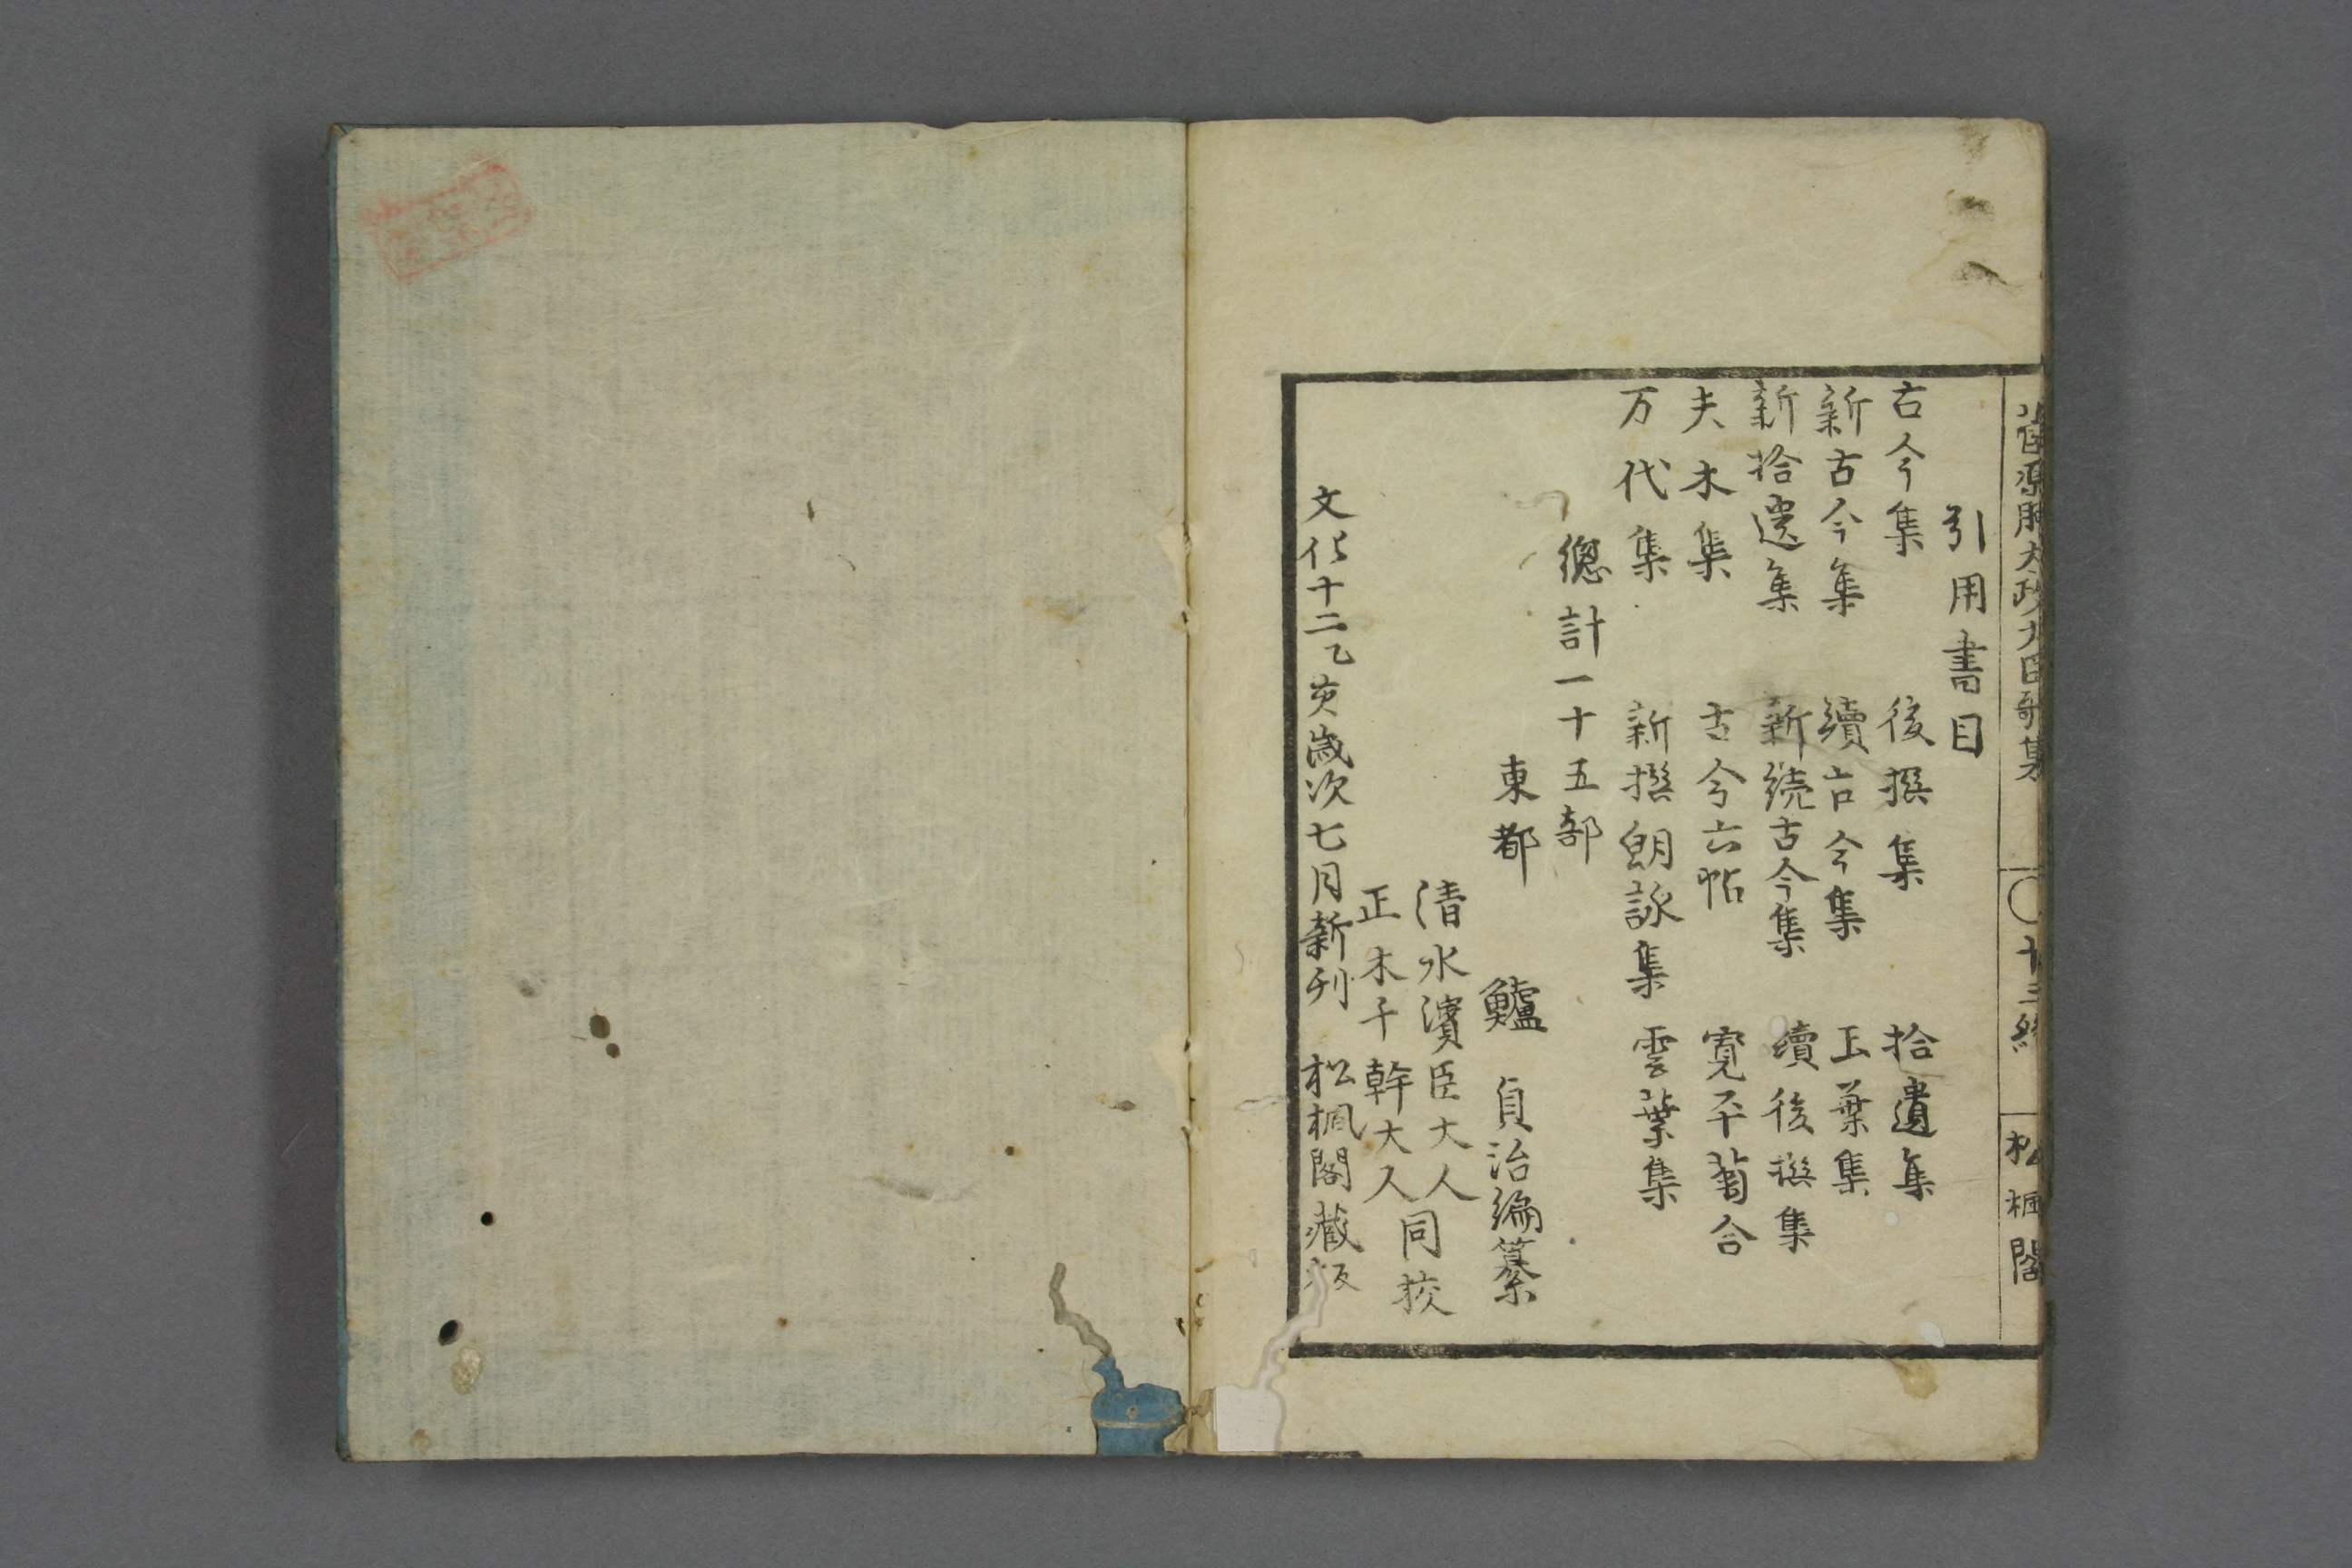 菅原贈太政大臣歌集 〇十三終 松楓閣
引用書目
古今集 後撰集 拾遺集
新古今集 續古今集 玉葉集
新拾遺集 新続古今集 續後撰集
夫木集 古今六帖 寛平菊合
万代集 新撰朗詠集 雲葉集
總計一十五部
東都 鱸 貞治編纂
清水濱臣大人
正木千幹大人同挍
文化十二乙亥歳次七月新刊 松楓閣藏板